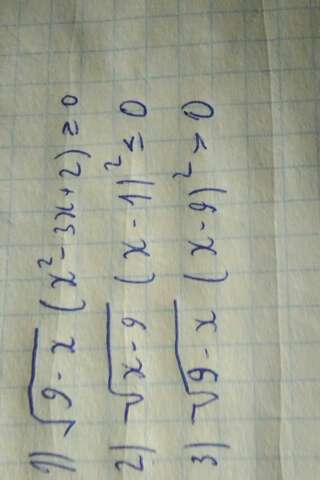 1) √9-x (x²-3x+2) ≥ 0
2) √x-9 (x-1)² ≤ 0
3) √9-x (x-9)² > 0